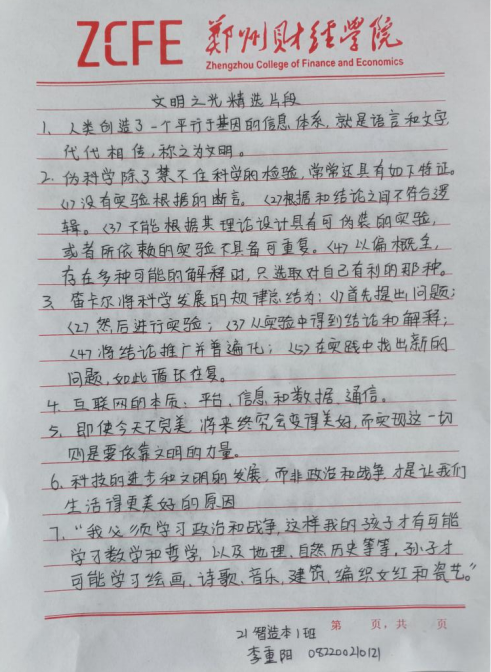 ZCFE 郑州财经学院
Zhengzhou College of Finance and Economics
文明之光精选片段
1、人类创造了一个平行于基因的信息体系,就是语言和文字,
代代相传,称之为文明。
2、伪科学除了禁不住科学的检验,常常还具有如下特征。
<1>没有实验根据的断言。<2>根据和结论之间不符合逻
辑。<3>不能根据其理论设计具有可伪装的实验,
或者所依赖的实验不具备可重复。<4>以偏概全,
存在多种可能的解释时,只选取对自己有利的那种。
3、笛卡尔将科学发展的规律总结为:<1>首先提出问题;
<2>然后进行实验;<3>从实验中得到结论和解释;
<4>将结论推广并普遍化;<5>在实践中找出新的
问题,如此循环往复。
4、互联网的本质:平台,信息和数据,通信。
5、即使今天不完美,将来终究会变得美好,而实现这一切
则是要依靠文明的力量。
6、科技的进步和文明的发展,而非政治和战争,才是让我们
生活得更美好的原因
7、“我必须学习政治和战争,这样我的孩子才有可能
学习数学和哲学,以及地理、自然历史等等,孙子才
可能学习绘画,诗歌、音乐,建筑,编织女红和瓷艺。”
第 页,共 页
21智造本1班
李重阳 082200210121